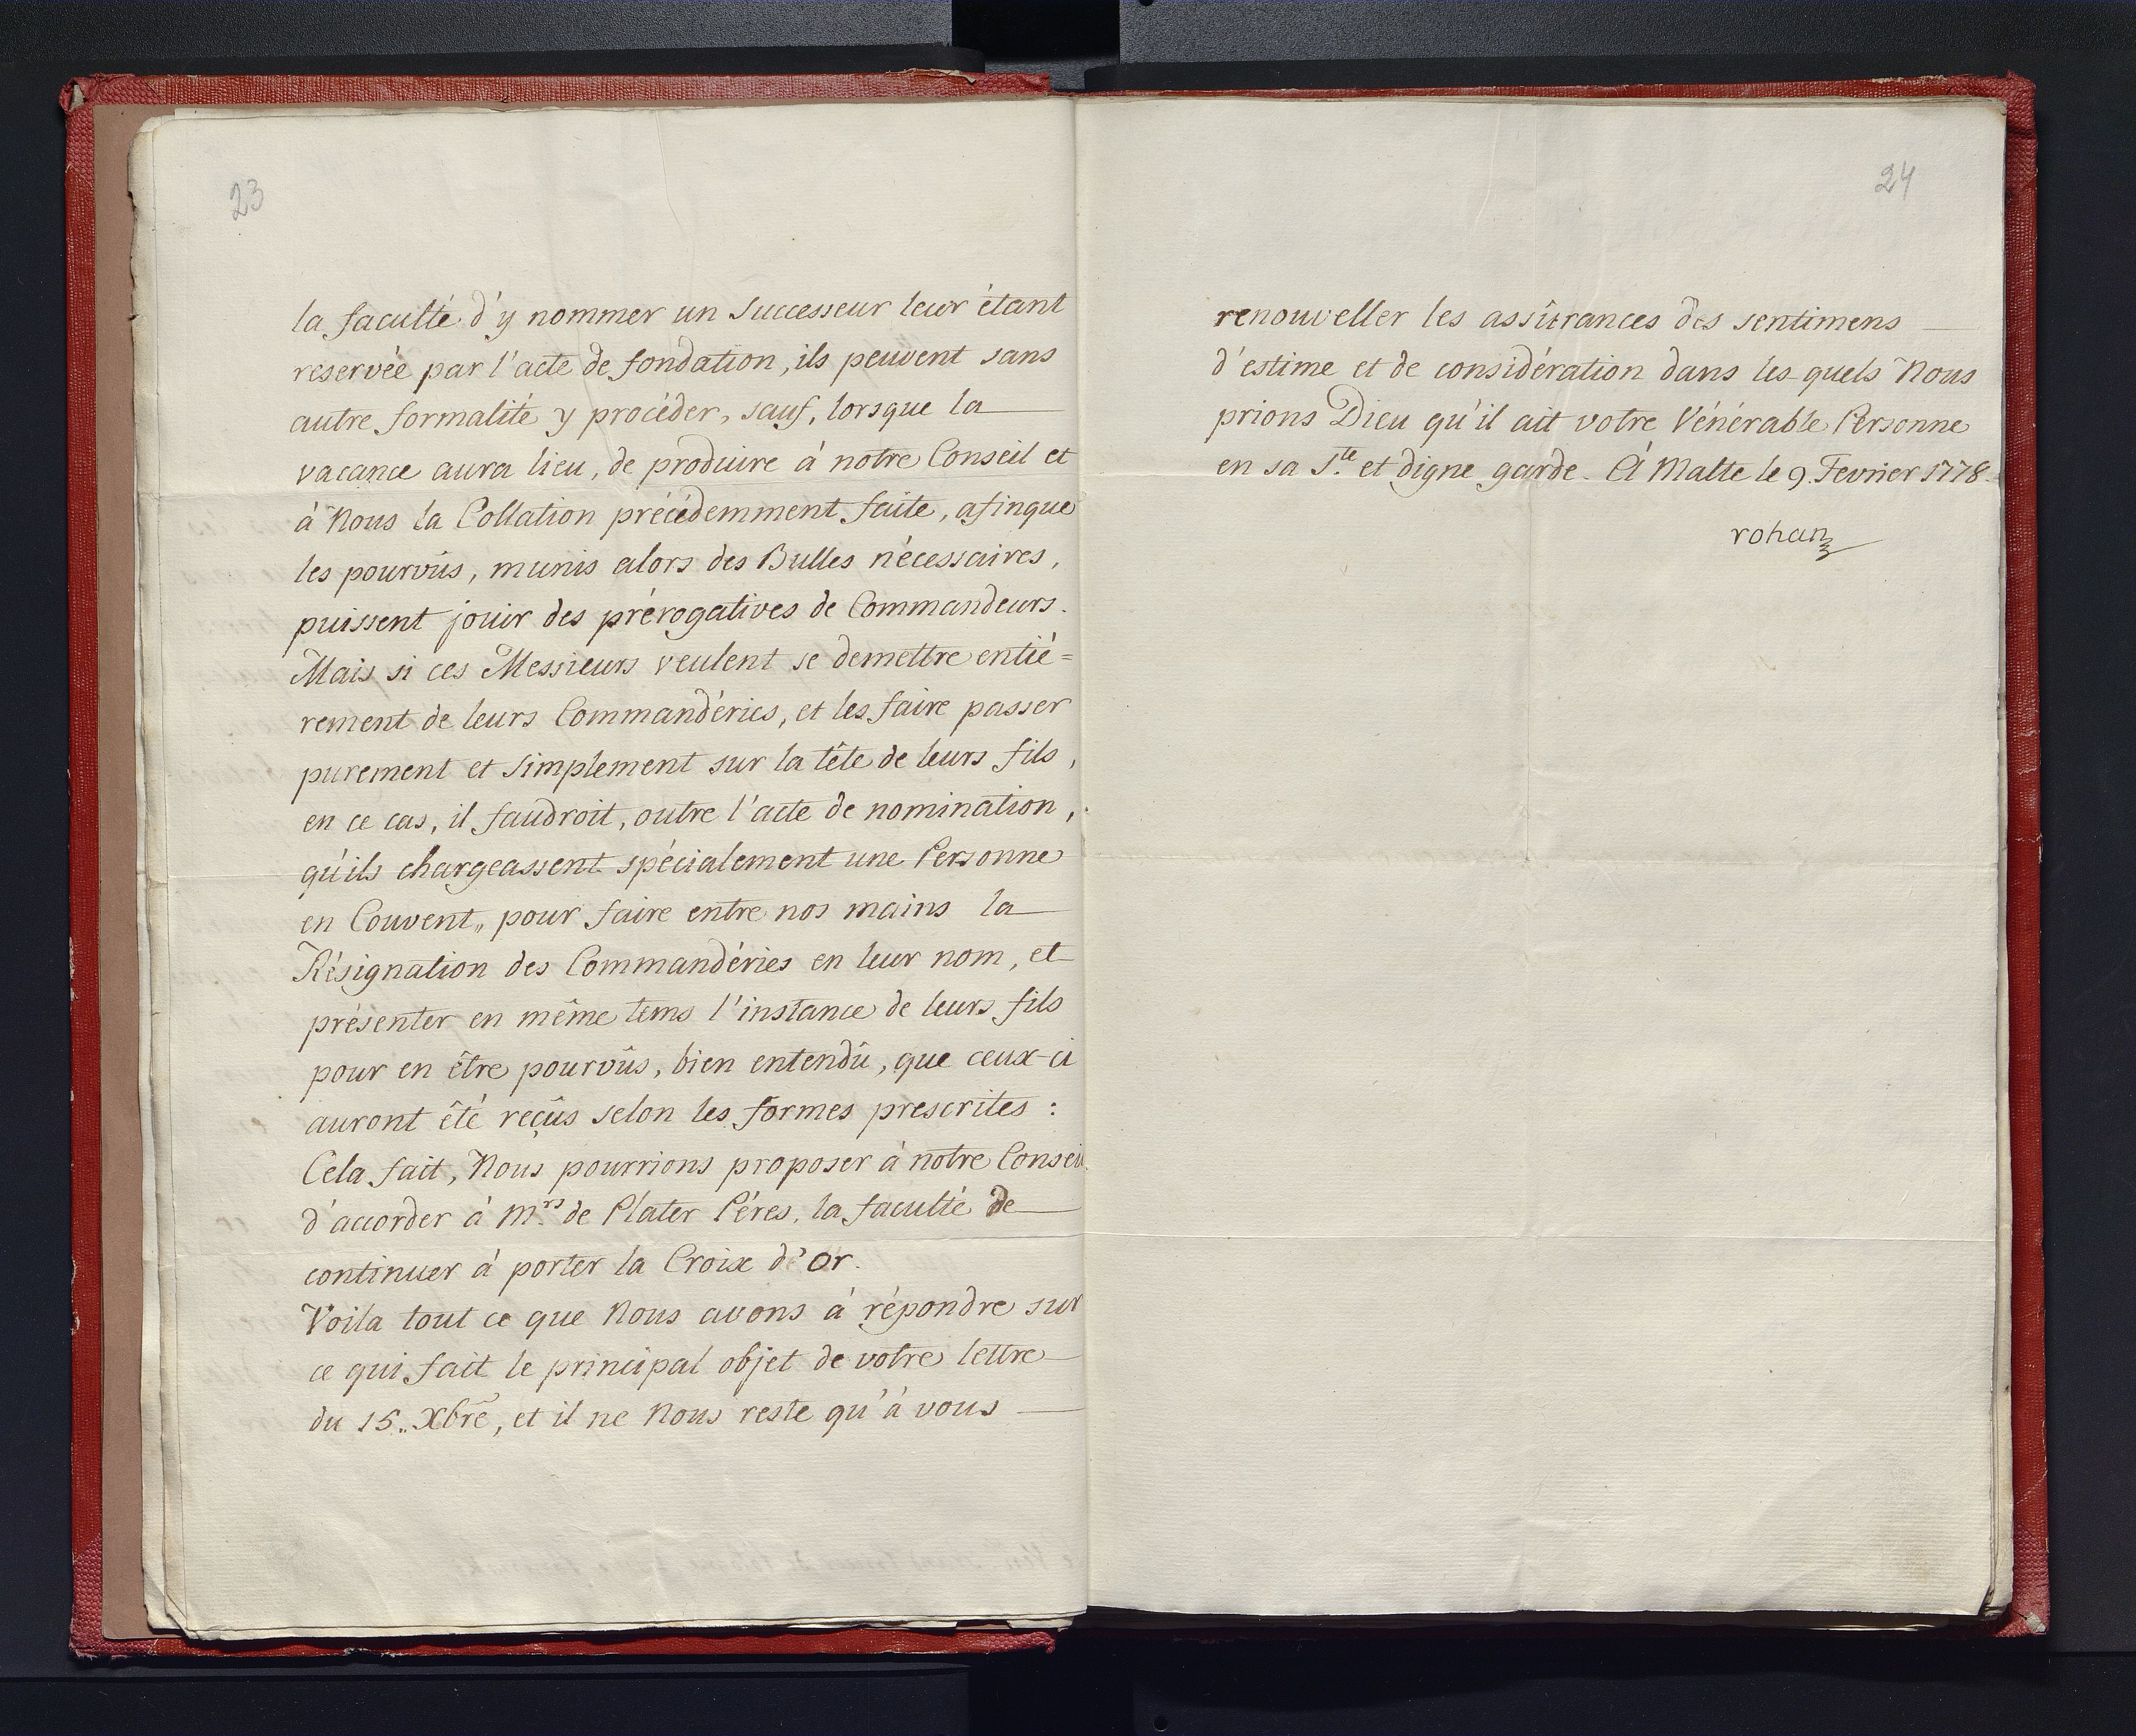 23
la faculté d'y nommer un Successeur leur étant
reservée par l'acte de fondation, ils peuvent sans
autre formalité y procéder, sauf, lorsque la
vacance aura lieu, de produire à notre Conseil et
à Nous la Collation précédemment faite, afinque
les pourvûs, munis alors des Bulles nécessaires,
puissent jouir des prérogatives de Commandeurs.
Mais si ces Messieurs veulent se demettre entié=
rement de leurs Commandéries, et les faire passer
purement et Simplement sur la tête de leurs fils,
en ce cas, il faudroit, outre l'acte de nomination,
qu'ils chargeassent spécialement une Personne
en Couvent„ pour faire entre nos mains la
Résignation des Commandéries en leur nom, et
présenter en même tems l'instance de leurs fils
pour en être pourvûs, bien entendû, que ceux-ci
auront êté reçûs selon les formes prescrites :
Cela fait, Nous pourrions proposer à notre Conseil
d'accorder à M.rs de Plater Péres, la faculté de
continuer à porter la Croix d'or.
Voila tout ce que Nous avons à répondre sur
ce qui fait le principal objet de votre lettre
du 15„ Xbre, et il ne Nous reste qu'à vous
24
renouveller les assûrances des sentimens
d'estime et de considération dans les quels Nous
prions Dieu qu'il ait votre Vénérable Personne
en sa S.te et digne garde. A Malte le 9. Fevrier 1778.
rohan